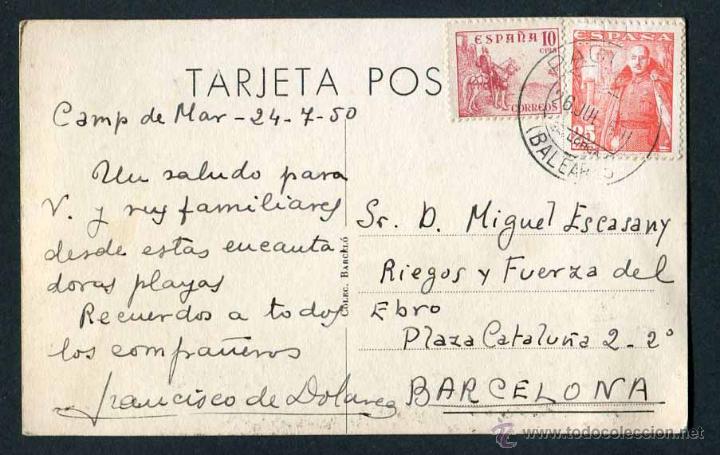 TARJETA POS
ESPAÑA 10
CTMS
CORREOS
ESPAÑA
(BALEARES
Camp de Mar - 24-7-50
Un saludo para
V. y sus familiares
desde estas encanta
doras playas
Recuerdos a todos
los compañeros
Francisco de
COLEC. BARCELÓ
Sr. D. Miguel Escasany
Riegos y Fuerza del
Ebro
Plaza Cataluña 2-2º
BARCELONA
todocoleccion
www.todocoleccion.net